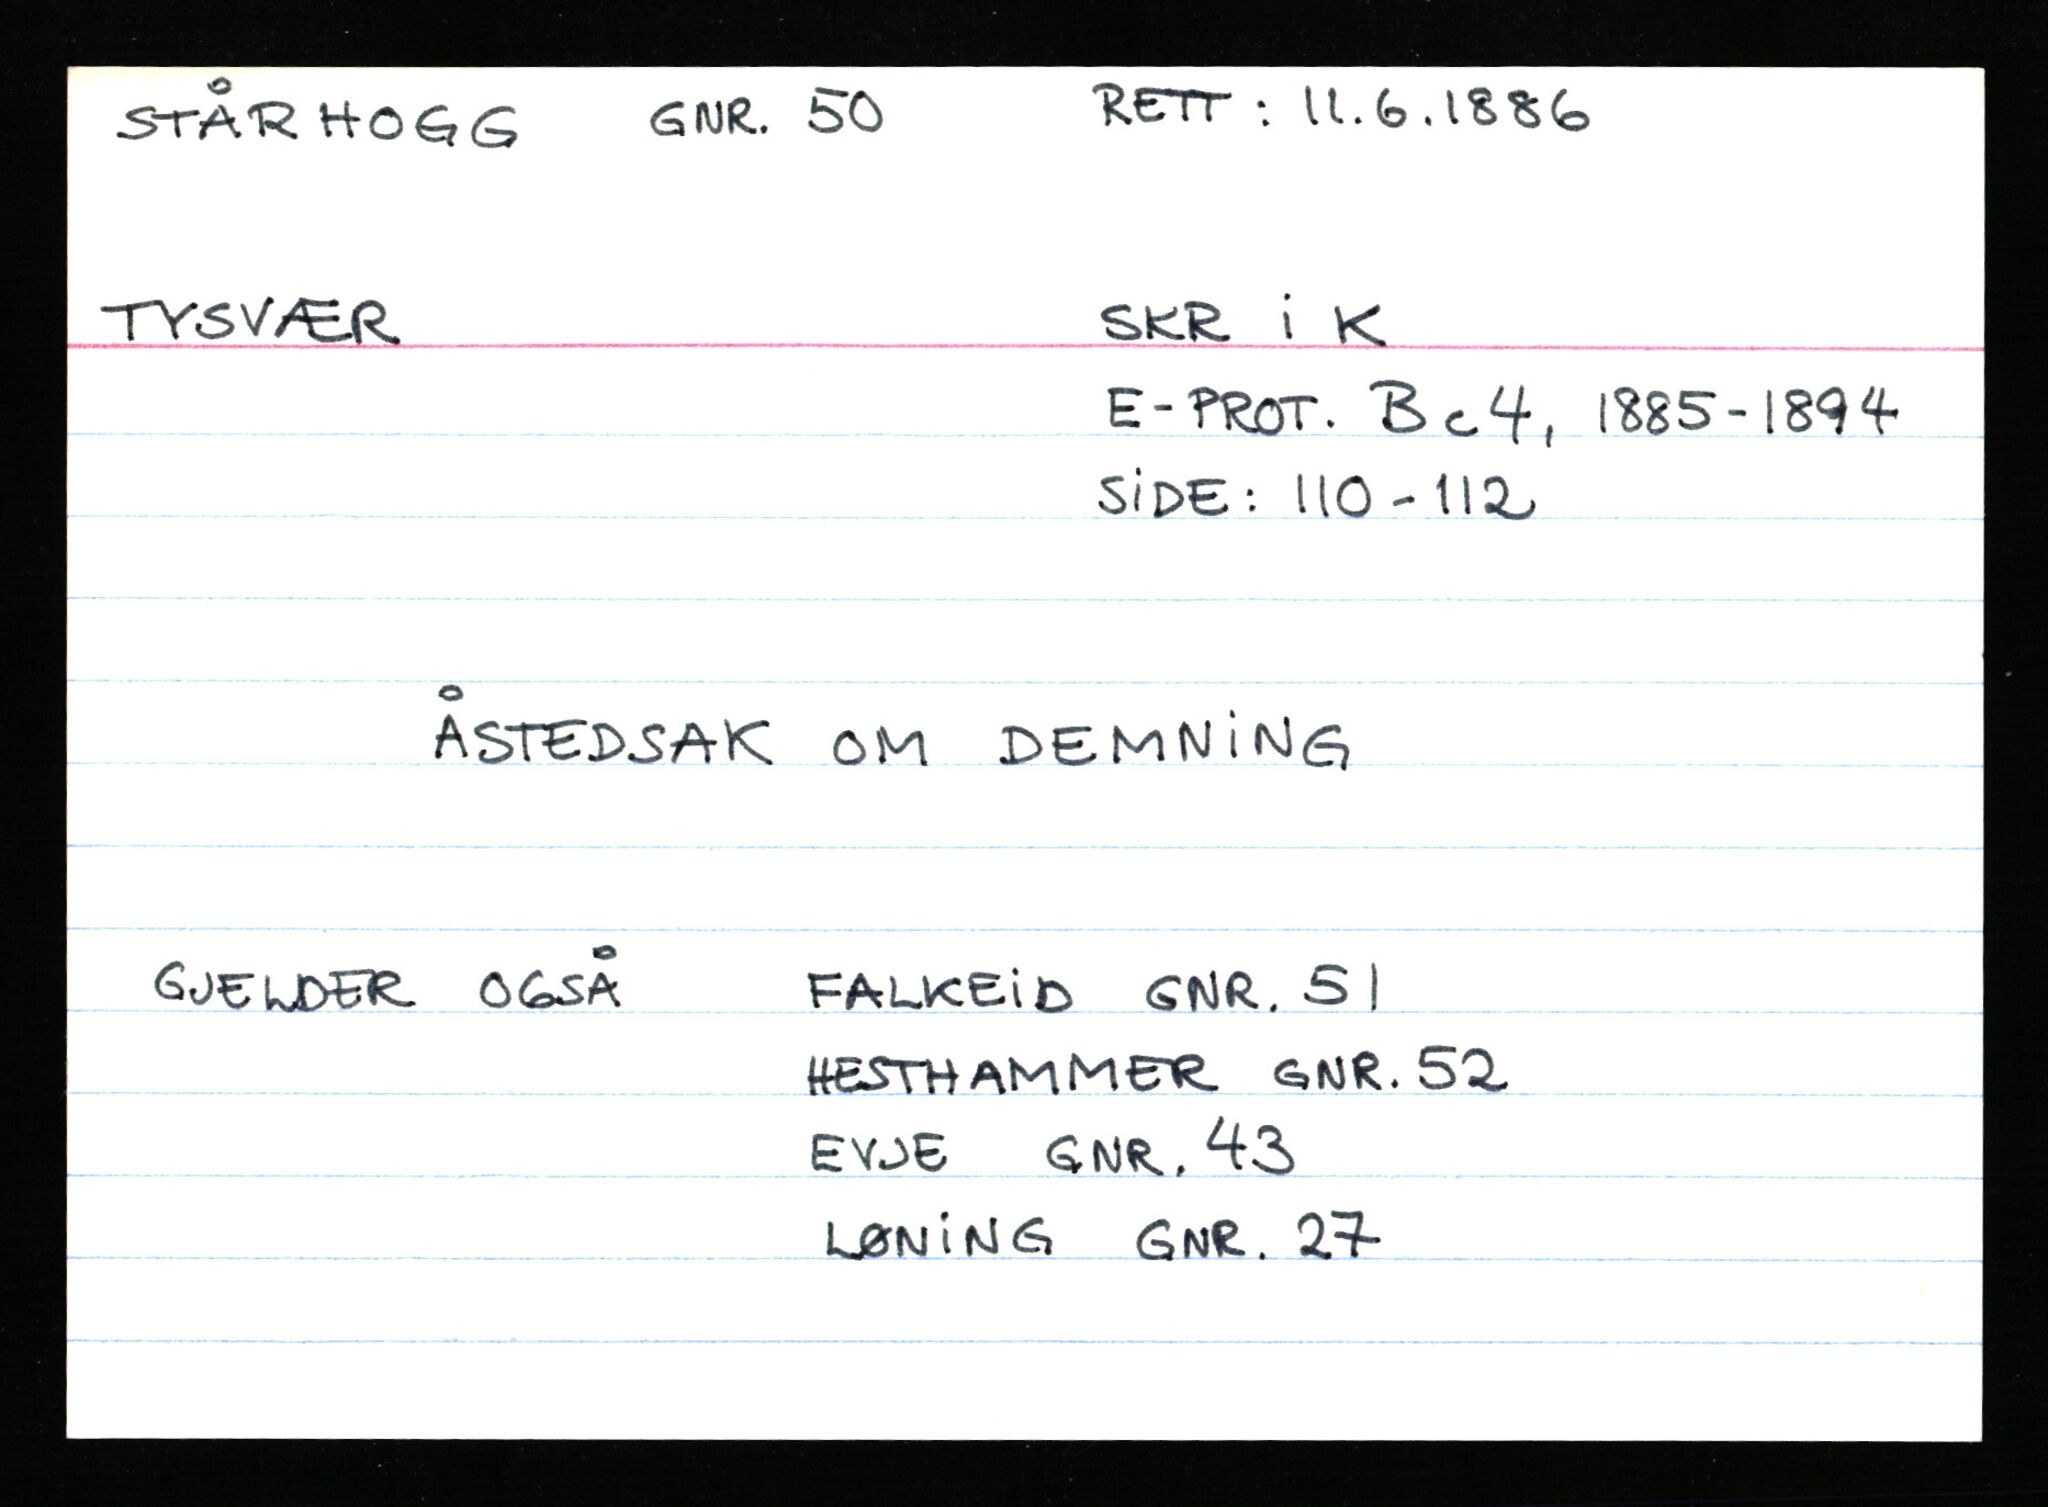 STÅRHOGG GNR. 50 RETT: 11.6.1886
TYSVÆR SKR i K
E-PROT. Bc4, 1885-1894
SiDE: 110-112
ÅSTEDSAK OM DEMNiNG
GJELDER OGSÅ FALKEiD GNR. 51
HESTHAMMER GNR. 52
EVJE GNR. 43
LØNiNG GNR. 27